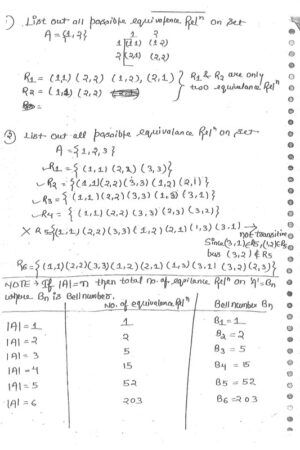 1) List out all possible equivalence Relⁿ on set
A = {1,2}
1 2
1 (1,1) (1,2)
2 (2,1) (2,2)
R1 = (1,1) (2,2) (1,2), (2,1) } R1 & R2 are only
R2 = (1,1) (2,2) two equivalence Relⁿ
② List out all possible equivalance Relⁿ on set
A = {1,2,3}
✓R1 = { (1,1) (2,2) (3,3)}
✓R2 = {(1,1)(2,2)(3,3)(1,2)(2,1)}
✓R3 = { (1,1)(2,2)(3,3)(1,3)(3,1)}
✓R4 = { (1,1)(2,2)(3,3)(2,3)(3,2)}
X R5={(1,1)(2,2)(3,3)(1,2)(2,1)(1,3)(3,1) → not Transitive
Since (3,1)∈R5, (1,2)∈R5
bus (3,2) ∉ R5
R6={(1,1)(2,2)(3,3)(1,2)(2,1)(1,3)(3,1)(3,2)(2,3)}
NOTE → If |A|=n then total no. of eqvilance Relⁿ on 'A'= Bn
where Bn is Bell number.
No. of equivalence Relⁿ Bell number Bn
|A| = 1 1 B1 = 1
|A| = 2 2 B2 = 2
|A| = 3 5 B3 = 5
|A| = 4 15 B4 = 15
|A| = 5 52 B5 = 52
|A| = 6 203 B6 = 203